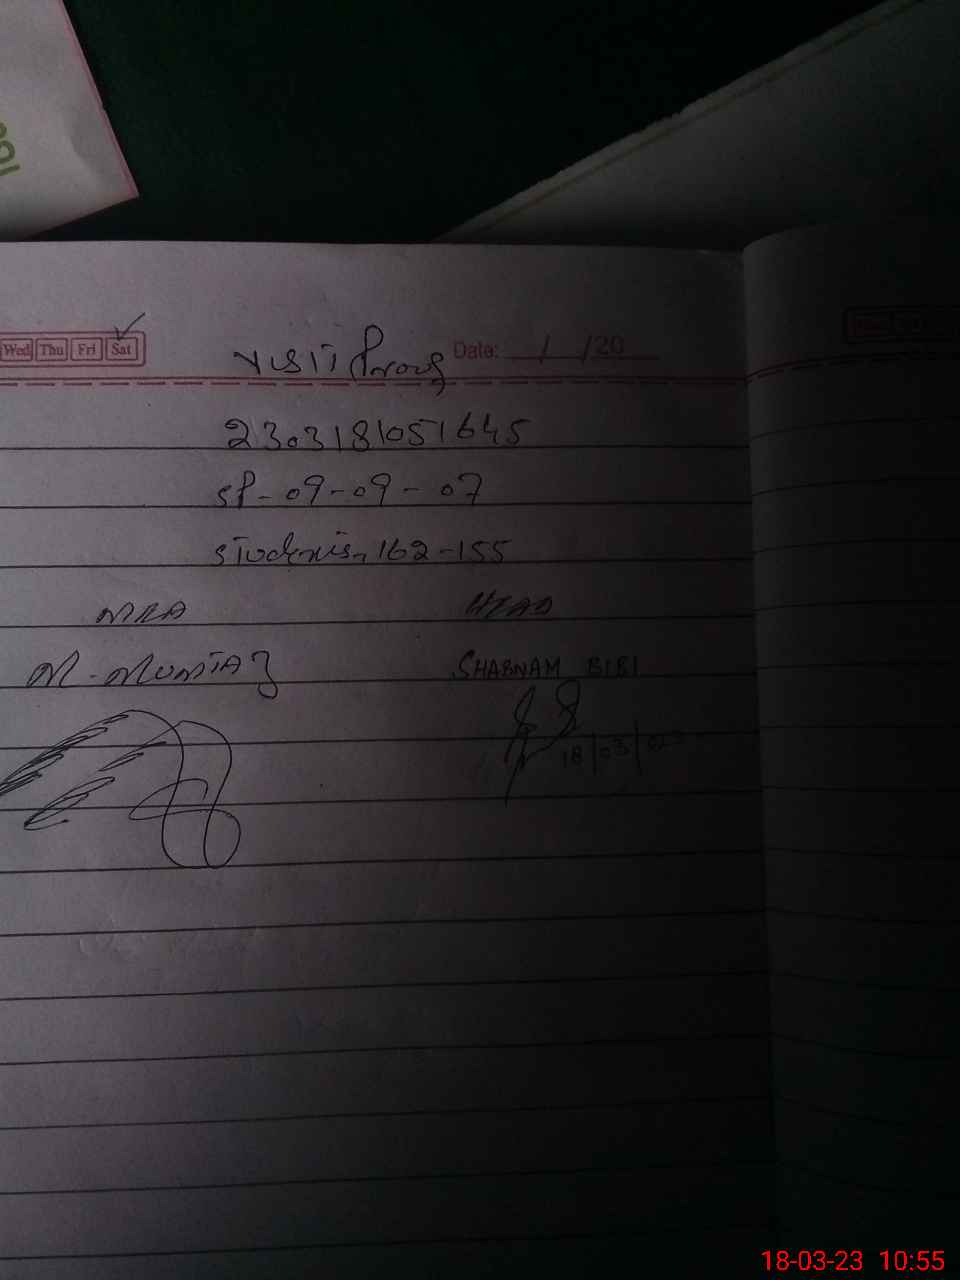 Wed Thu Fri Sat
VISIT Proof Date: / /20
2303181051645
SP-09-09-07
STudenis. 162-155
MEA HEAD
M. MUMTAZ SHABNAM BIBI
18/03/023
18-03-23 10:55